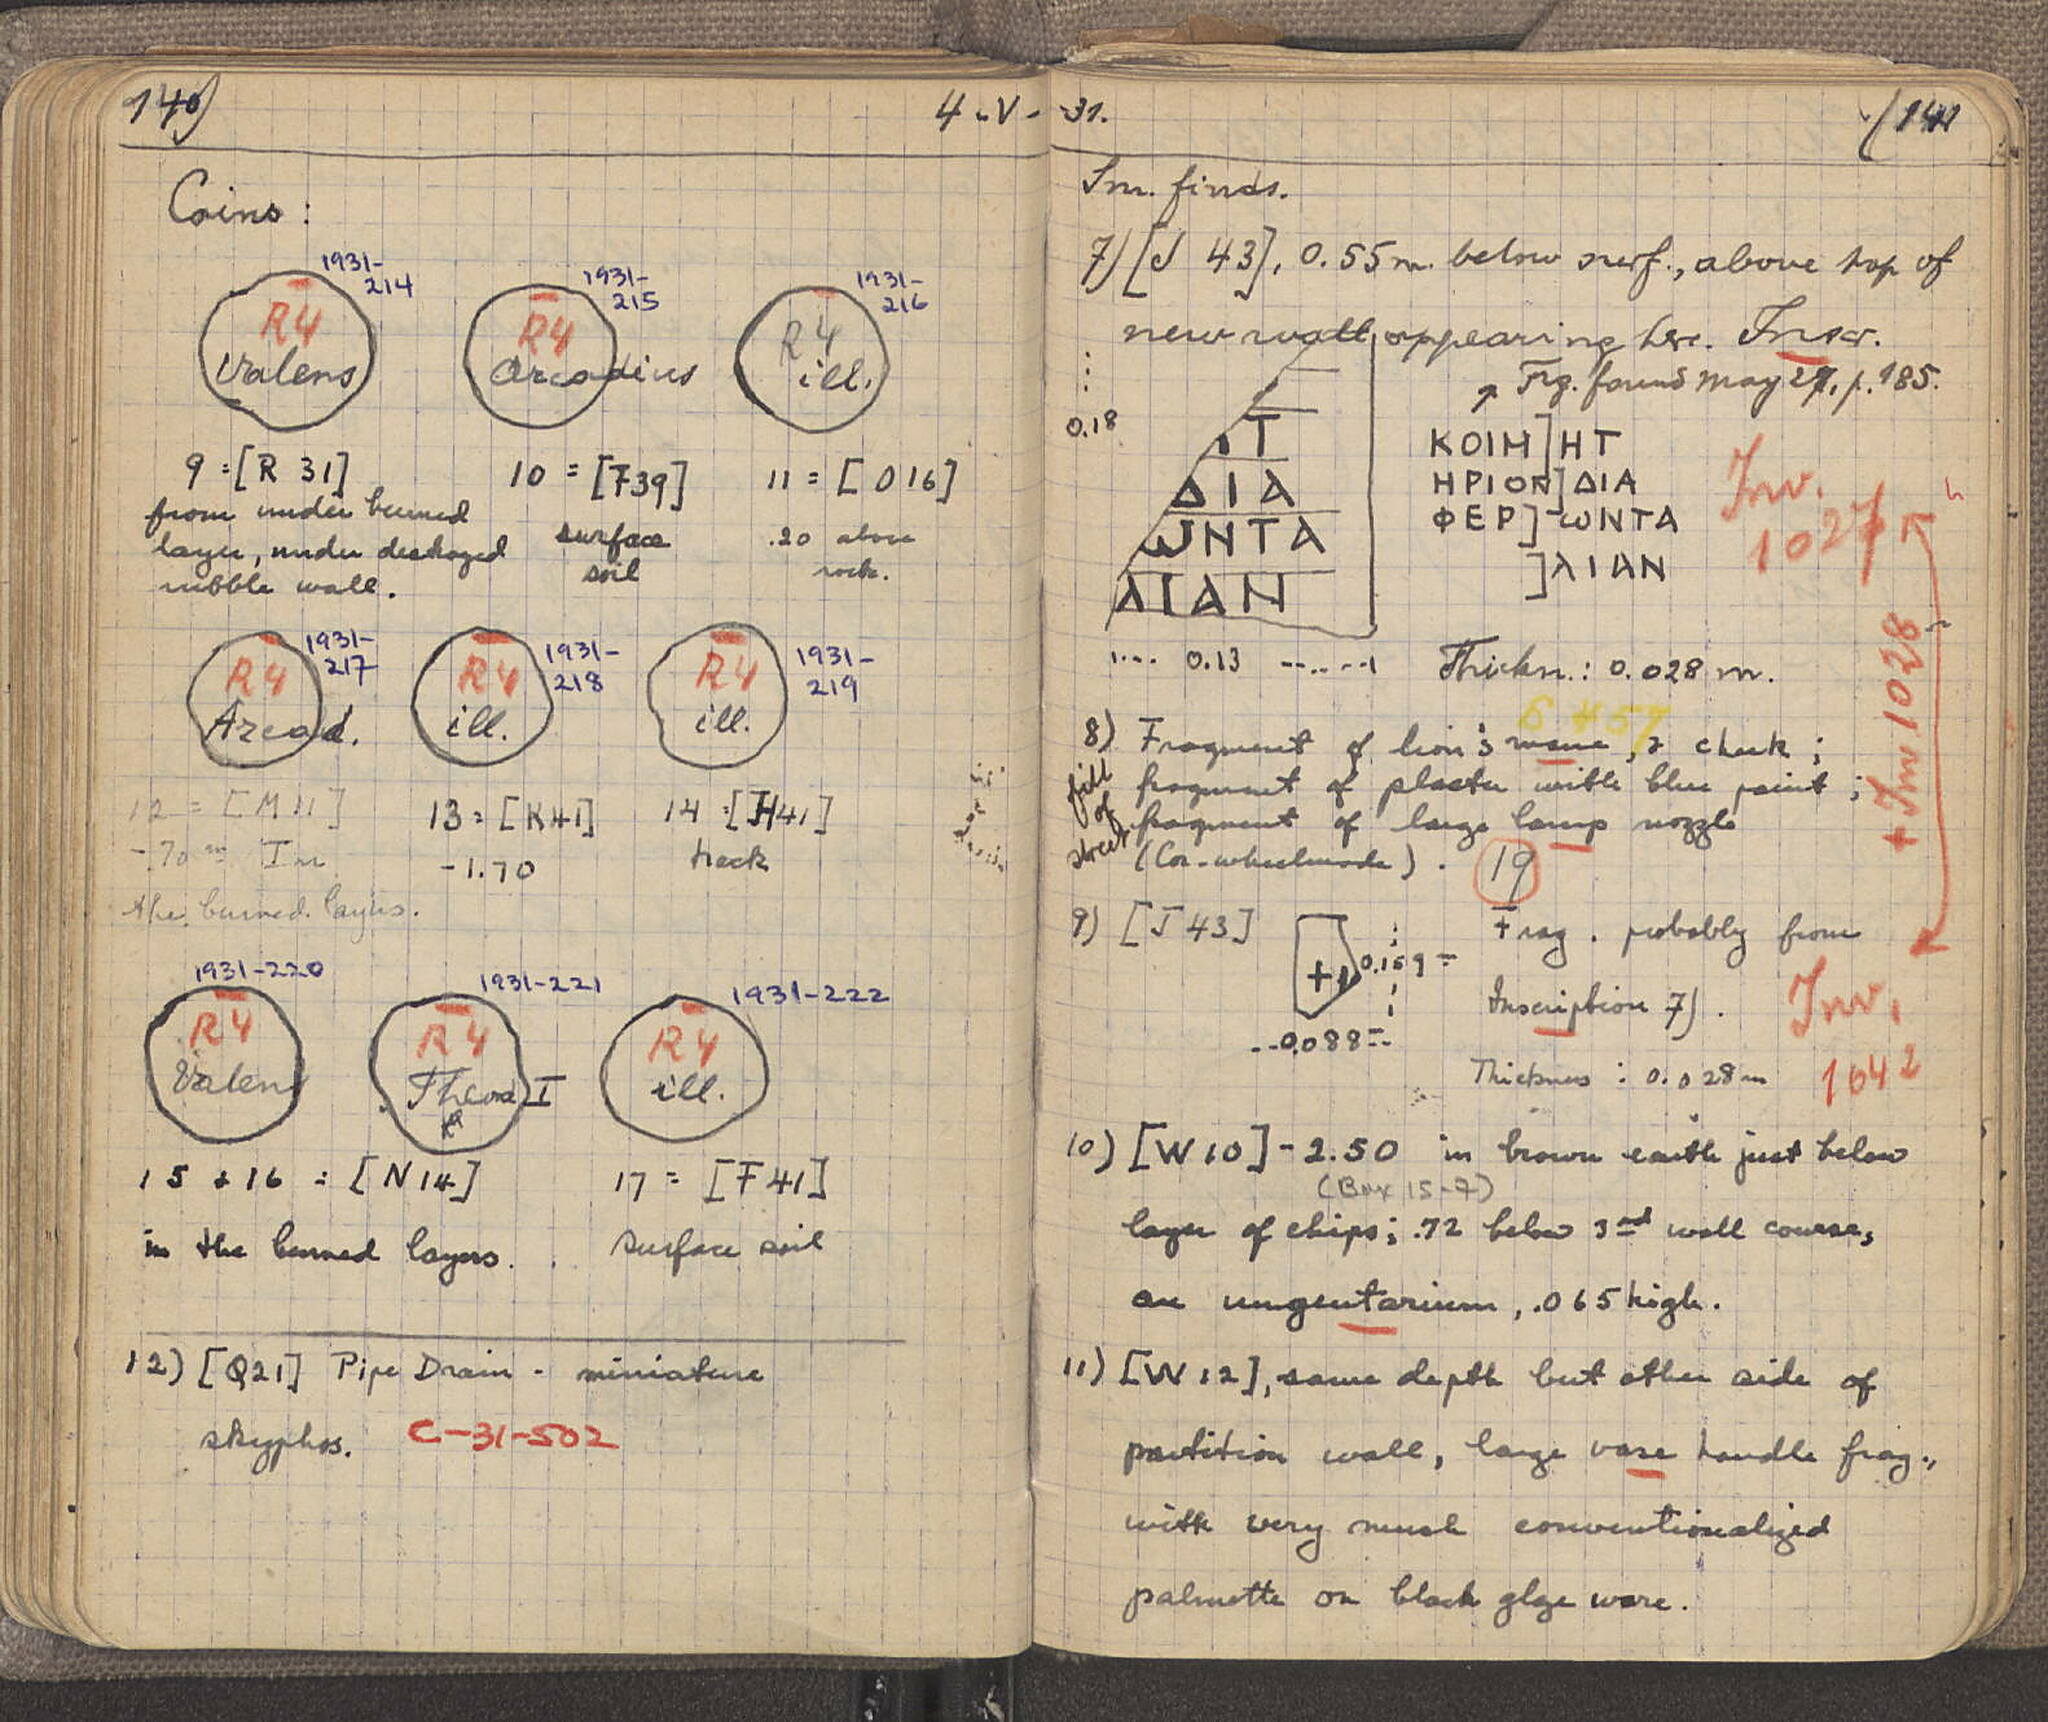 140)
4-V-
Coins:
1931-
214
R4
Valens
1931-
215
R4
Arcadius
1931-
216
R4
ill.
9 = [R 31]
from under burned
layer, under destroyed
rubble wall.
10 = [F39]
surface
soil
11 = [O16]
.20 above
rock.
1931-
217
R4
Arcad.
1931-
218
R4
ill.
1931-
219
R4
ill.
12 = [M11]
-.70 m In
the burned layers.
13 = [K41]
-1.70
14 = [H41]
track
1931-220
R4
Valens
1931-221
R4
Theod I
1931-222
R4
ill.
15 + 16 = [N14]
in the burned layers.
17 = [F41]
surface soil
12) [Q21] Pipe Drain - miniature
skyphos. C-31-502
-31.
(141
Im. finds.
7) [J 43], 0.55 m. below surf., above top of
new wall appearing here. Inscr.
Frg. found May 27, p. 185.
0.18
ΙΤ
ΔΙΑ
ωΝΤΑ
ΛΙΑΝ
ΚΟΙΜ]ΗΤ
ΗΡΙΟΝ]ΔΙΑ
ΦΕΡ]ωΝΤΑ
]ΛΙΑΝ
Inv.
1027
+Inv 1028
0.13
Thickn.: 0.028 m.
8) Fragment of lion's mane, & cheek;
fragment of plaster with blue paint;
fragment of large lamp nozzle
(Cor-wheelmade). 19
fill
of
street
9) [J 43]
0.159 =
-0.088=
Frag. probably from
Inscription 7).
Thickness : 0.028 m
Inv.
1042
10) [W10] - 2.50 in brown earth just below
(Box 15-7)
layer of chips; .72 below 3rd wall course,
an unguentarium, .065 high.
11) [W12], same depth but other side of
partition wall, large vase handle frag.,
with very much conventionalized
palmette on black glaze ware.